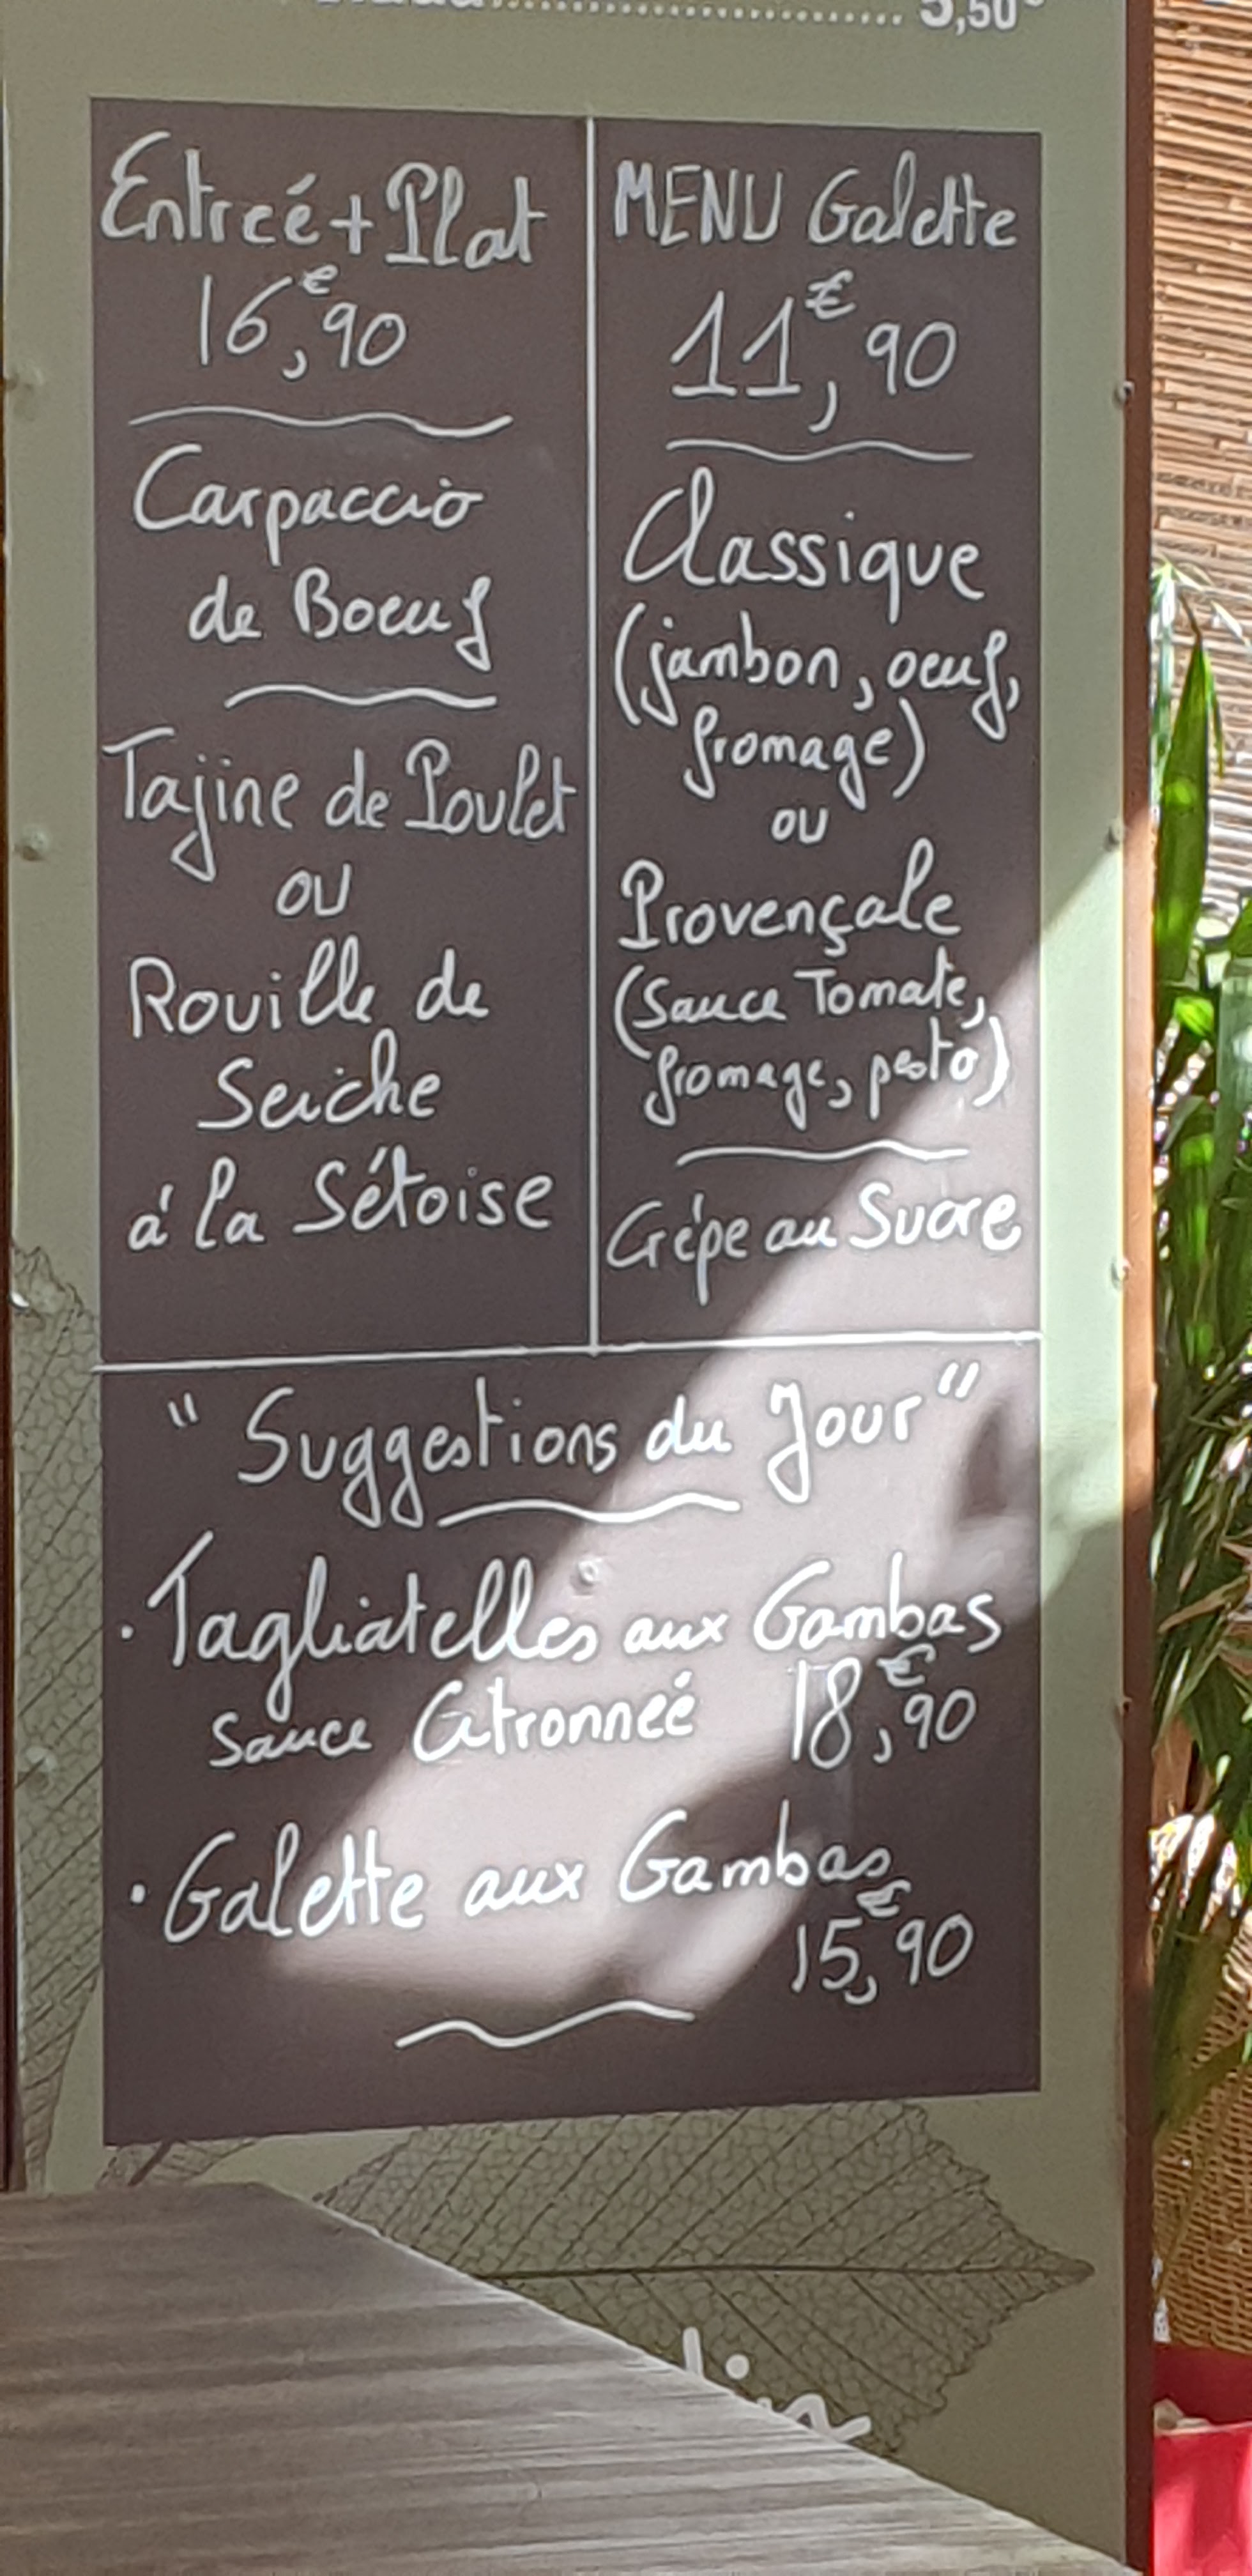 5,50€
Entreé + Plat
16,90€
Carpaccio
de Boeuf
Tajine de Poulet
ou
Rouille de
Seiche
à la Sétoise
MENU Galette
11,90€
Classique
(jambon, oeuf,
fromage)
ou
Provençale
(Sauce Tomate,
fromage, pesto)
Crêpe au Sucre
"Suggestions du Jour"
· Tagliatelles aux Gambas
sauce Citronneé 18,90€
· Galette aux Gambas
15,90€